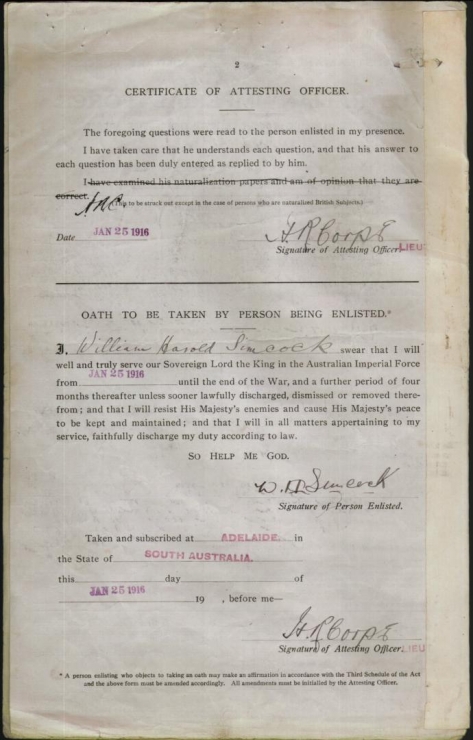 2
CERTIFICATE OF ATTESTING OFFICER.
The foregoing questions were read to the person enlisted in my presence.
I have taken care that he understands each question, and that his answer to
each question has been duly entered as replied to by him.
I have examined his naturalization papers and am of opinion that they are
correct. (This to be struck out except in the case of persons who are naturalized British Subjects.)
Date JAN 25 1916 H R Corps
Signature of Attesting Officer. LIEU
OATH TO BE TAKEN BY PERSON BEING ENLISTED.*
I, William Harold Simcock swear that I will
well and truly serve our Sovereign Lord the King in the Australian Imperial Force
from JAN 25 1916 until the end of the War, and a further period of four
months thereafter unless sooner lawfully discharged, dismissed or removed there-
from; and that I will resist His Majesty's enemies and cause His Majesty's peace
to be kept and maintained; and that I will in all matters appertaining to my
service, faithfully discharge my duty according to law.
SO HELP ME GOD.
W. H. Simcock
Signature of Person Enlisted.
Taken and subscribed at ADELAIDE. in
the State of SOUTH AUSTRALIA.
this day of
JAN 25 1916 19 , before me—
H R Corps
Signature of Attesting Officer. LIEU
* A person enlisting who objects to taking an oath may make an affirmation in accordance with the Third Schedule of the Act
and the above form must be amended accordingly. All amendments must be initialled by the Attesting Officer.